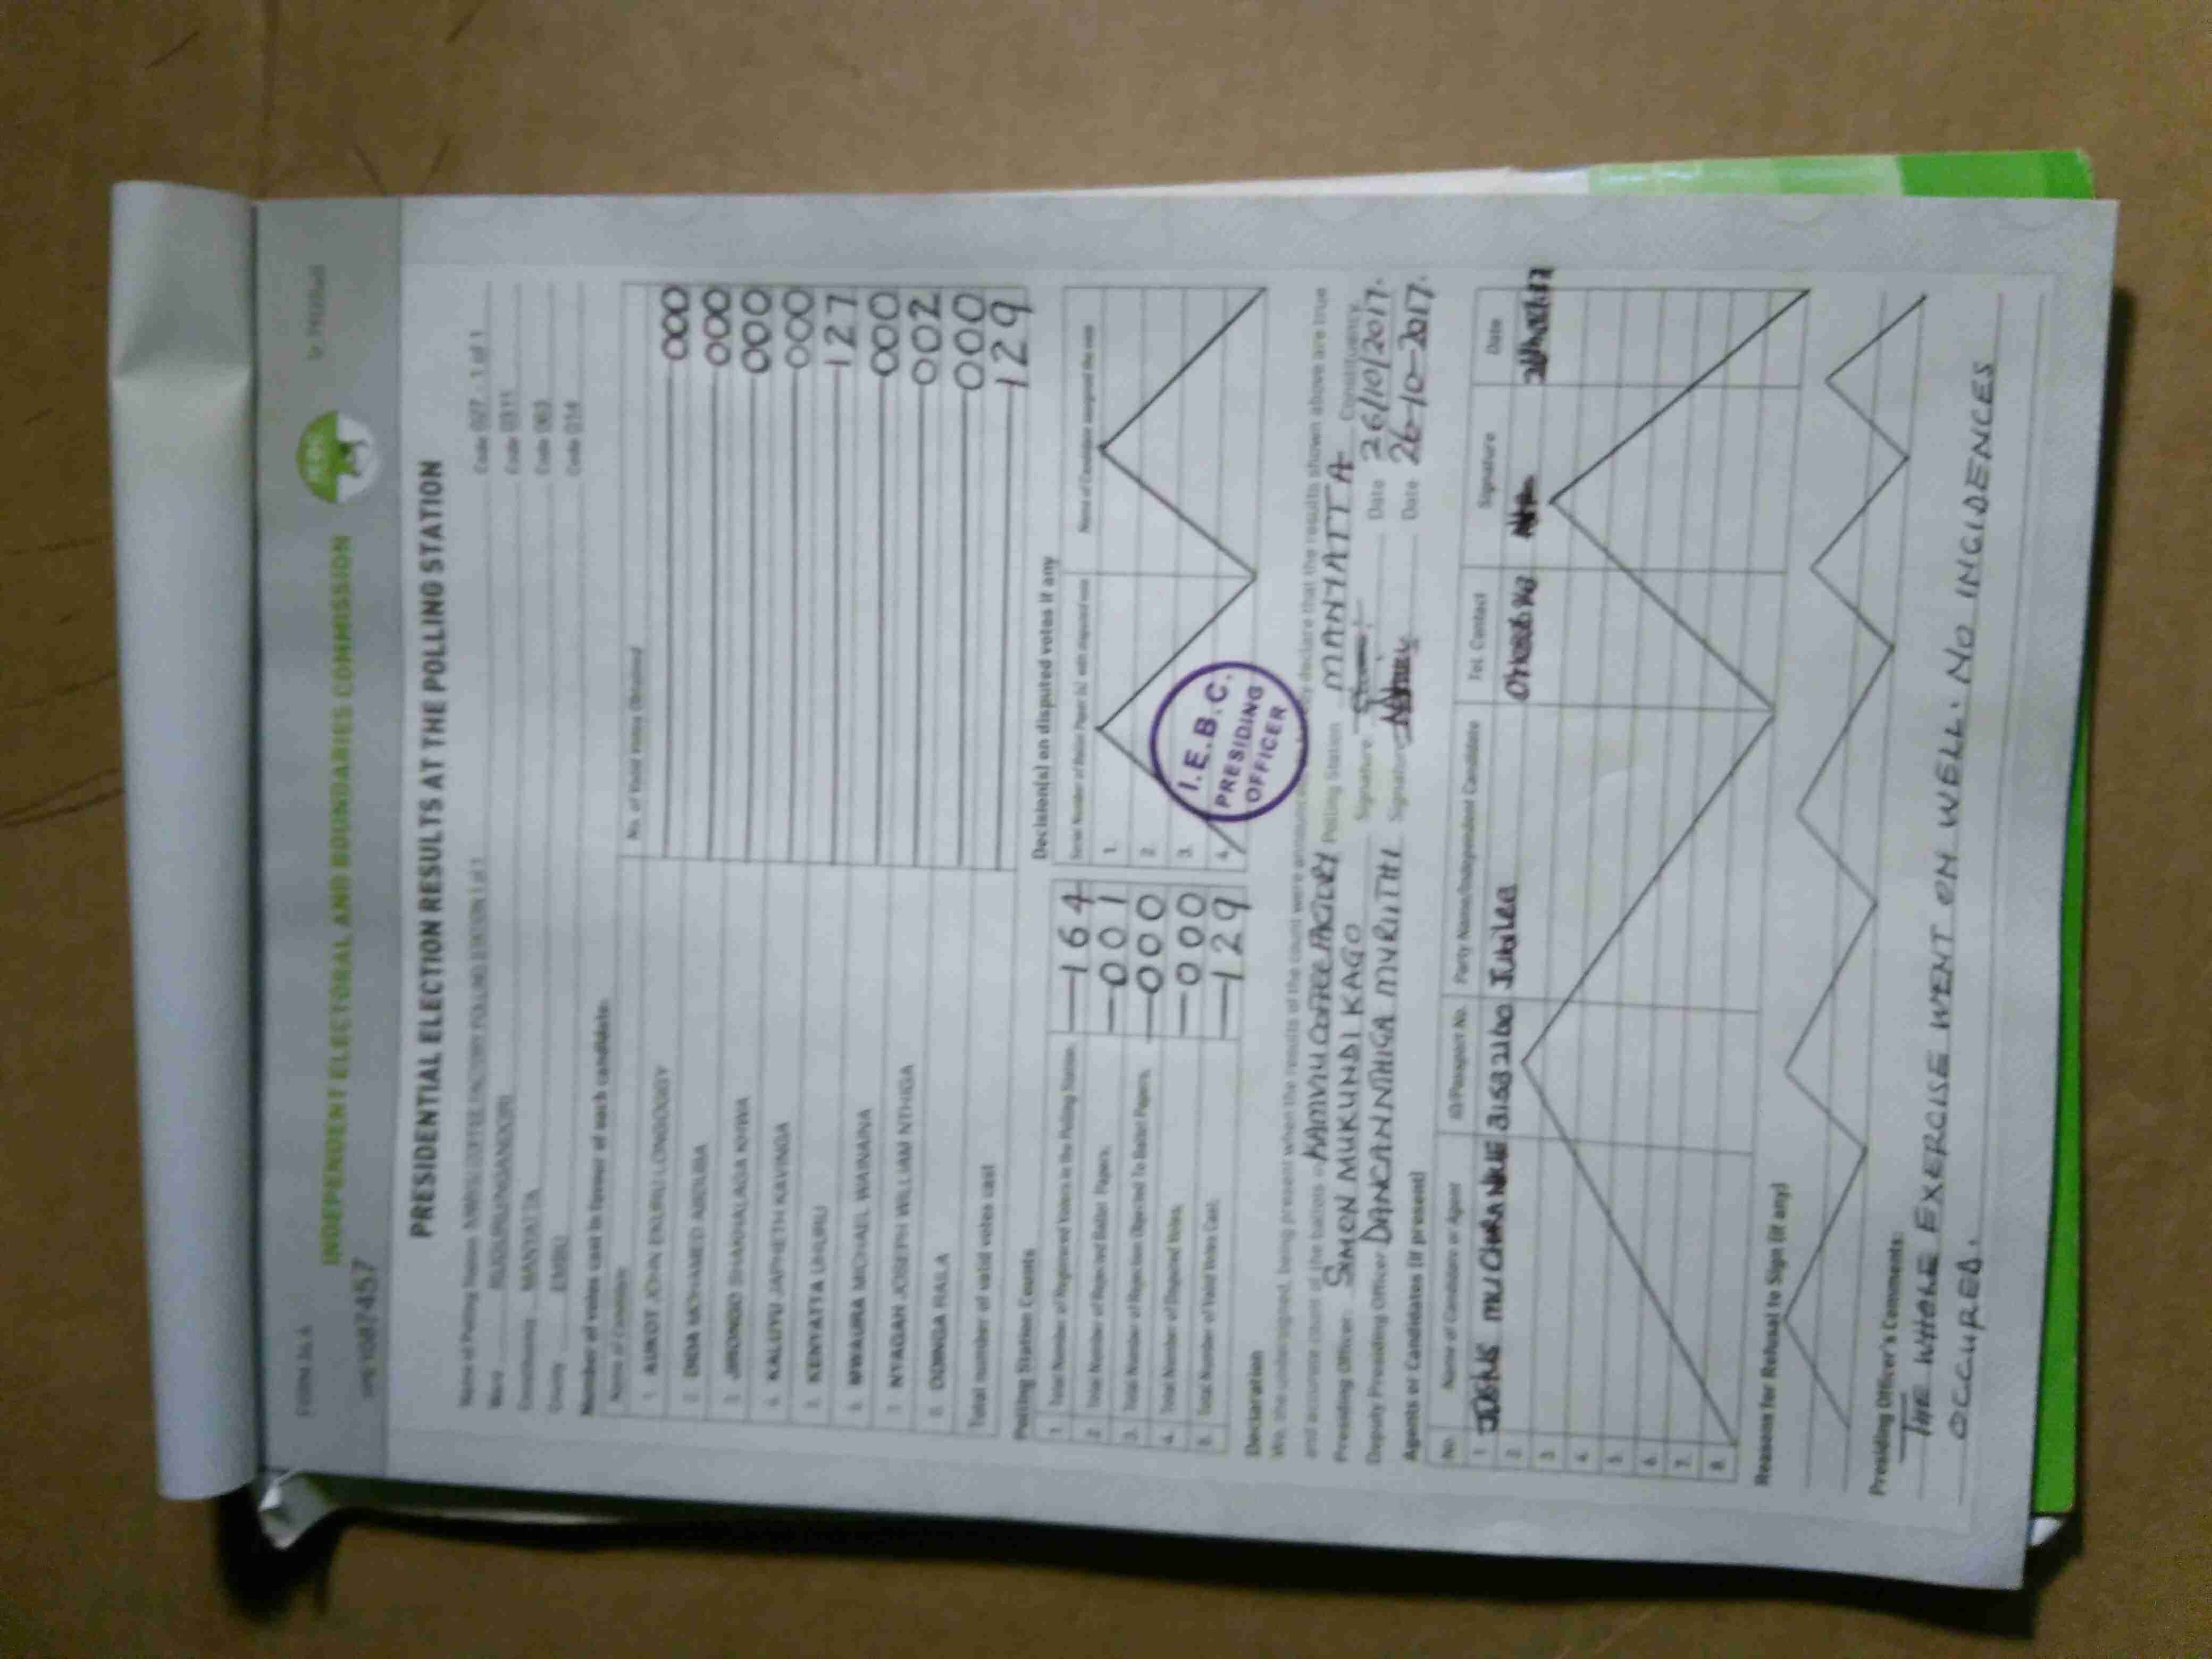 FORM 34 A
INDEPENDENT ELECTORAL AND BOUNDARIES COMMISSION
PRESIDENTIAL ELECTION RESULTS AT THE POLLING STATION
Name of Polling Station
Code 027 1 of 1
Ward RUGURU/NGANDORI Code
Constituency MANYATTA Code
County EMBU Code 014
Number of votes cast in favour of each candidate:
Name of Candidate No. of Valid Votes Obtained
1. AUKOT JOHN EKURU LONGOGGY 000
2. DIDA MOHAMED ABDUBA 000
3. JIRONGO SHAKHALAGA KHWA 000
4. KALUYU JAPHETH KAVINGA 000
5. KENYATTA UHURU 127
6. MWAURA MICHAEL WAINAINA 000
7. NYAGAH JOSEPH WILLIAM NTHIGA 002
8. ODINGA RAILA 000
Total number of valid votes cast 129
Polling Station Counts
1. Total Number of Registered Voters in the Polling Station. 164
2. Total Number of Rejected Ballot Papers. 001
3. Total Number of Rejection Objected To Ballot Papers. 000
4. Total Number of Disputed Votes. 000
5. Total Number of Valid Votes Cast. 129
Decision(s) on disputed votes if any
1.
2.
3.
4.
I.E.B.C.
PRESIDING
OFFICER
Declaration
We, the undersigned, being present when the results of the count were declare that the results shown above are true
and accurate count of the ballots KAMVIU COFFEE FACTORY Polling Station MANYATTA Constituency
Presiding Officer SIMON MUKUNDI KAGO Signature Date 26/10/2017.
Deputy Presiding Officer DANCAN NTHIGA MURIITHI Signature Date 26-10-2017.
Agents or Candidates (if present)
No. Name of Candidate or Agent ID/Passport No. Party Name/Independent Candidate Tel. Contact Signature Date
1. Jubilee
2.
3.
4.
5.
6.
7.
8.
Reasons for Refusal to Sign (if any)
Presiding Officer's Comments:
THE WHOLE EXERCISE WENT ON WELL. NO INCIDENCES
OCCURED.